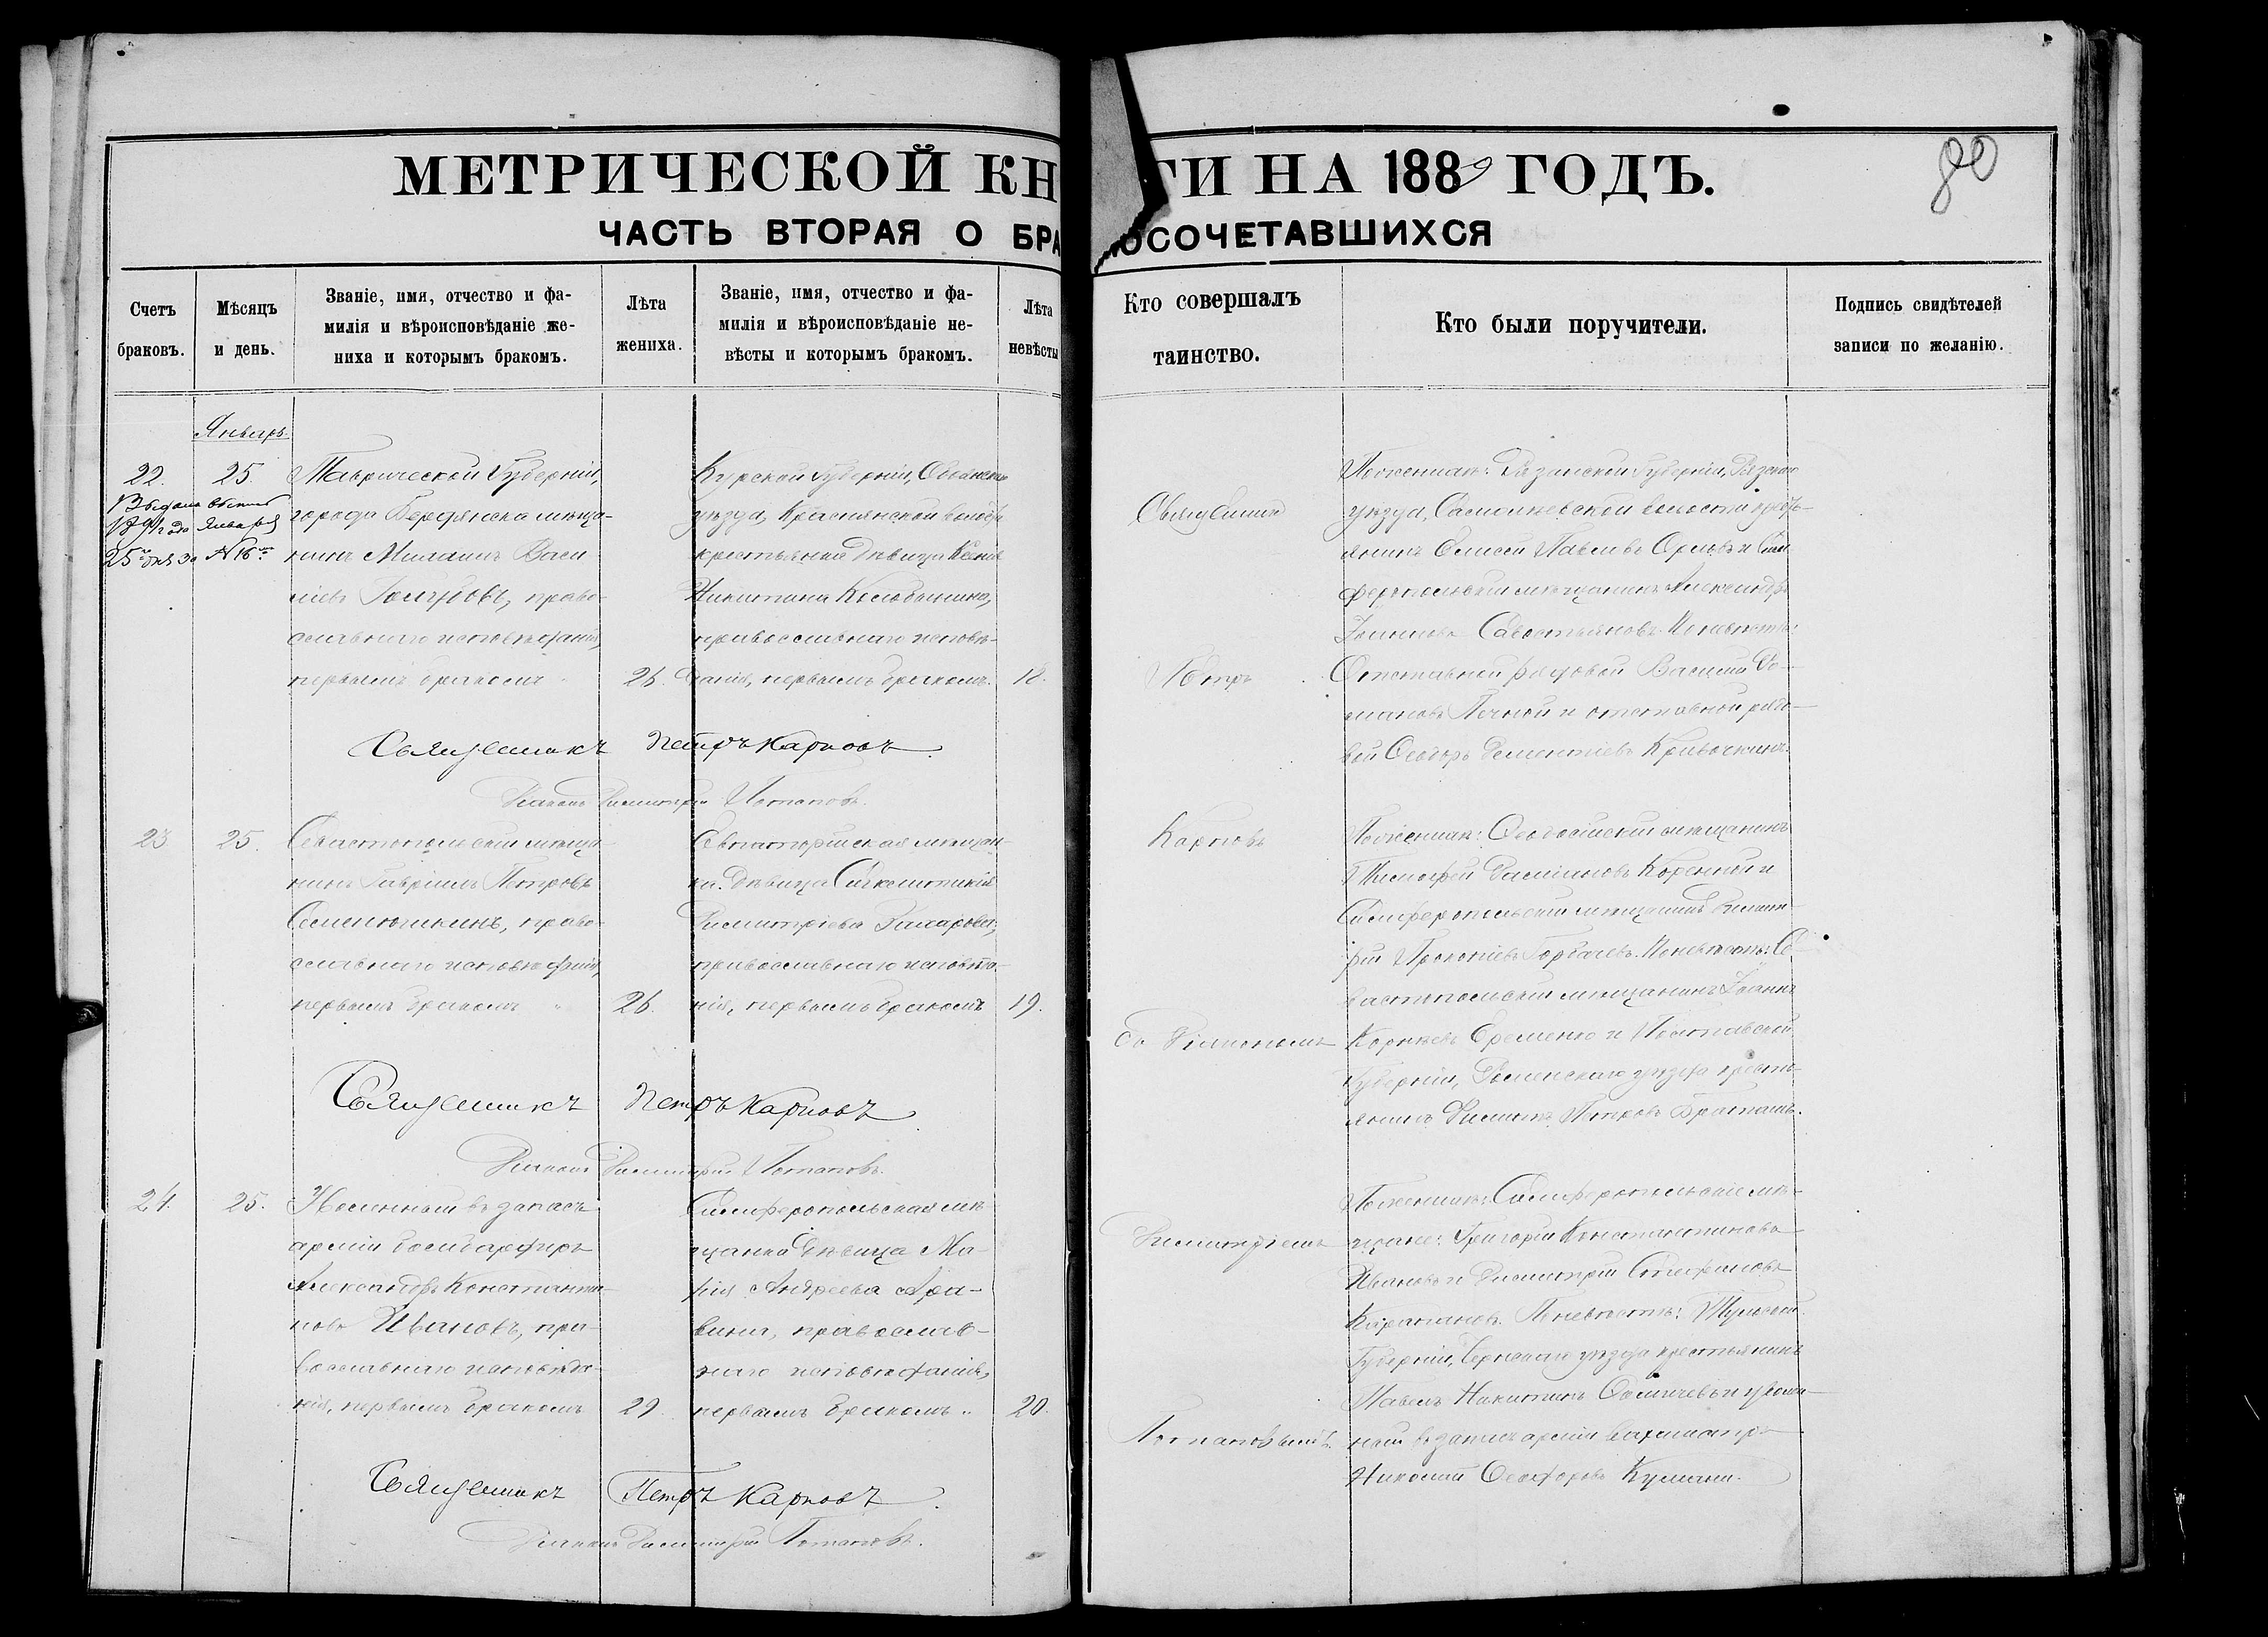 80
МЕТРИЧЕСКОЙ КН ГИ НА 1889 ГОДЪ.
ЧАСТЬ ВТОРАЯ О БРА ОСОЧЕТАВШИХСЯ
Счетъ
браковъ.
Мѣсяцъ
и день.
Званіе, имя, отчество и фа-
милія и вѣроисповѣданіе же-
ниха и которымъ бракомъ.
Лѣта
жениха.
Званіе, имя, отчество и фа-
милія и вѣроисповѣданіе не-
вѣсты и которымъ бракомъ.
Лѣта
невѣсты
Кто совершалъ
таинство.
Кто были поручители.
Подпись свидѣтелей
записи по желанію.
Январь.
22.
25.
Таврической Губерніи,
города Бердянска мѣща-
нинъ Михаилъ Васи-
льевъ право-
славнаго исповѣданія,
первымъ бракомъ
26.
Курской Губерніи,
уѣзда,
крестьянка дѣвица Ксенія
Никитина
православнаго исповѣ-
данія, первымъ бракомъ.
18.
Священникъ
Петръ
Карповъ
съ Діакономъ
Димитріемъ
Потаповымъ.
По женихѣ: Рязанской Губерніи,
уѣзда, волости кресть-
янинъ Елисей Павловъ Орловъ и Сим
феропольскій мѣщанинъ Александръ
Іоанновъ Савостьяновъ. По невѣстѣ:
Отставной рядовой Василій Ро-
мановъ и отставной рядо-
вой Ѳеодоръ Дементіевъ
Священникъ Петръ Карповъ.
Діаконъ Димитрій Потаповъ.
23
25.
Севастопольскій мѣща-
нинъ Гавріилъ Петровъ
право-
славнаго исповѣданія,
первымъ бракомъ
26.
Евпаторійская мѣщан-
ка дѣвица
Димитріева
православнаго исповѣда-
нія, первымъ бракомъ
19.
По женихѣ: Ѳеодосійскій мѣщанинъ
Тимофей и
Симферопольскій мѣщанинъ Димит-
рій Прокопіевъ Горбачевъ. По невѣстѣ: Се-
вастопольскій мѣщанинъ Іоаннъ
Корнѣевъ Еременко и Полтавской
Губерніи, Роменскаго уѣзда кресть-
янинъ Петровъ
Священникъ Петръ Карповъ
Діаконъ Димитрій Потаповъ.
24.
25.
Уволенный въ запасъ
арміи бомбардиръ
Александръ Константи-
новъ Ивановъ, пра-
вославнаго исповѣда-
нія, первымъ бракомъ
29.
Симферопольская мѣ-
щанка дѣвица Ма-
рія Андреева
православ-
наго исповѣданія,
первымъ бракомъ.
20.
По женихѣ: Симферопольскіе мѣ-
щане: Григорій Константиновъ
Ивановъ и Димитрій Стефановъ
По невѣстѣ: Тульской
Губерніи, Чернскаго уѣзда крестьянинъ
Павелъ Никитинъ и уволен-
ный въ запасъ арміи вахмистръ
Николай Ѳеодоровъ
Священникъ Петръ Карповъ.
Діаконъ Димитрій Потаповъ.